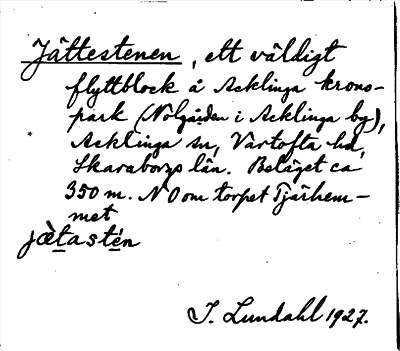 Jättestenen, ett väldigt
flyttblock å Acklinga krono-
park (Nolgården i Acklinga by),
Acklinga sn, Vartofta hd,
Skaraborgs län. Beläget ca
350 m. NO om torpet Tjärhem-
met
jætastén
I. Lundahl 1927.